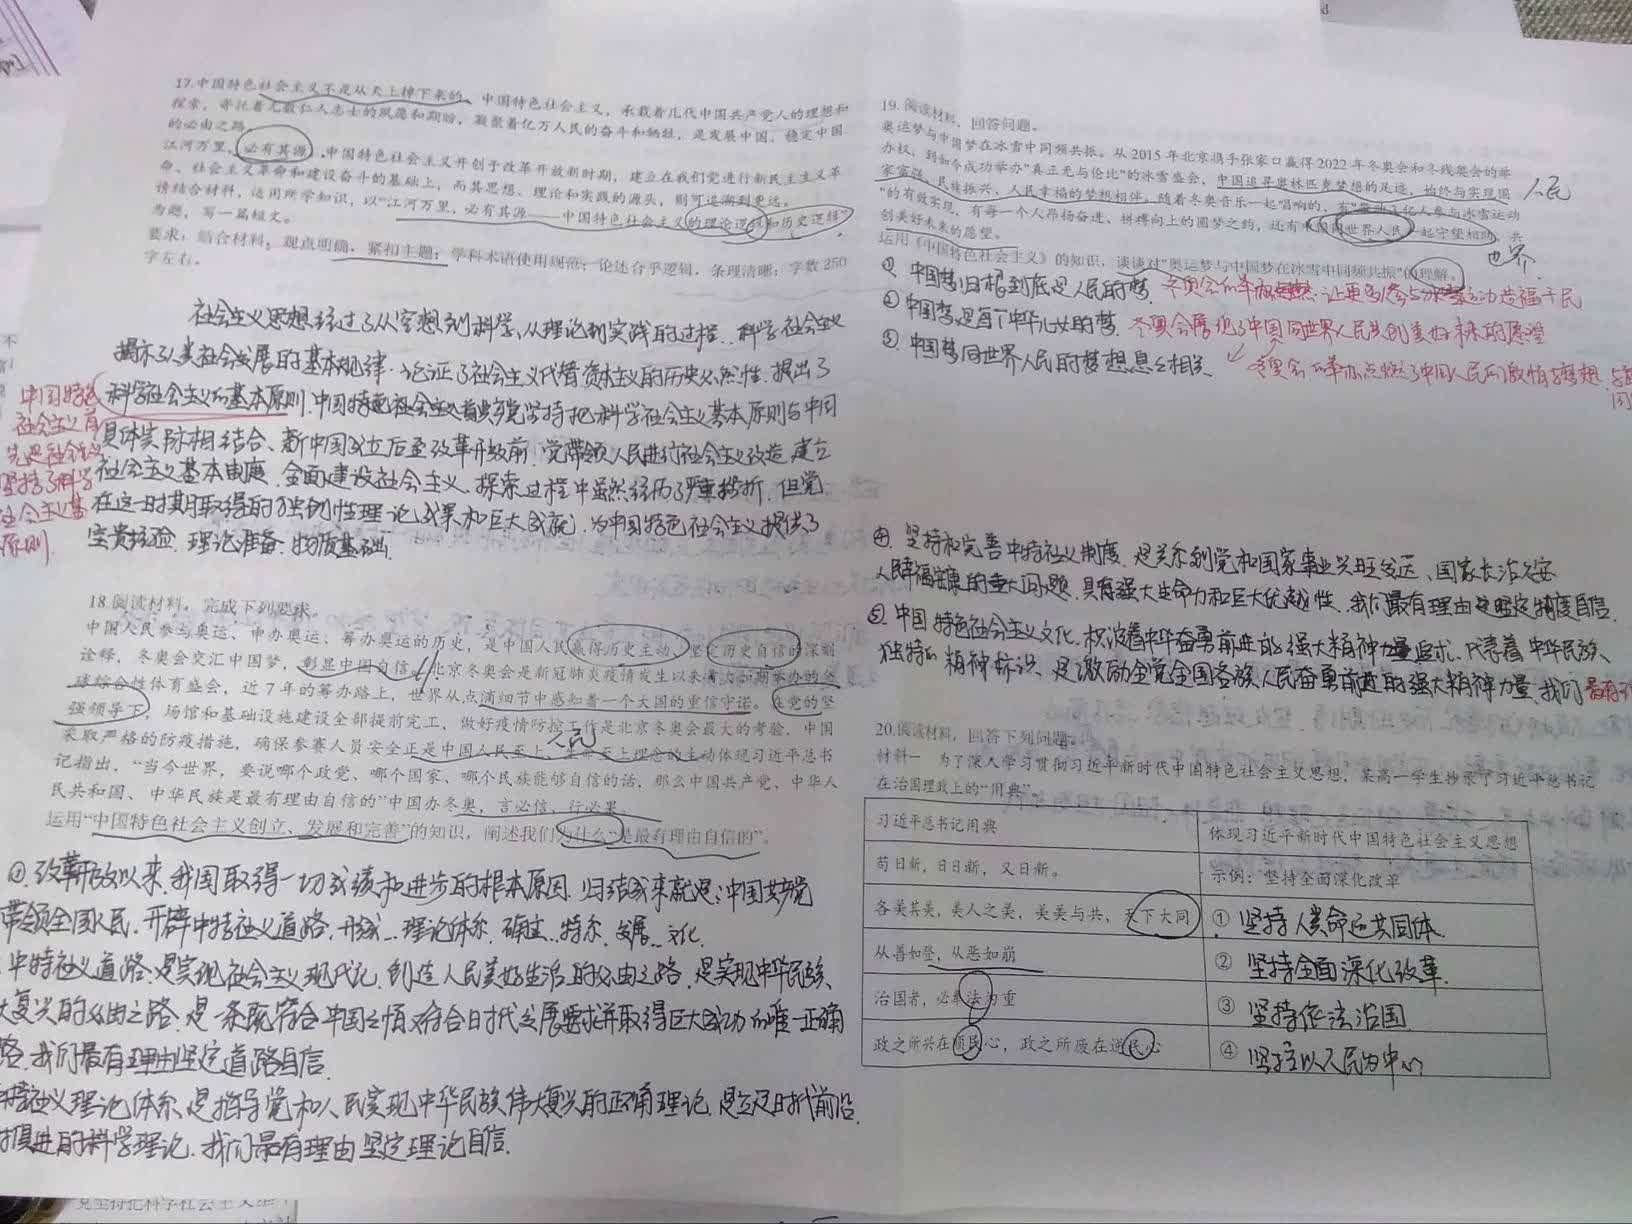 17.中国特色社会主义不是从天上掉下来的。中国特色社会主义，承载着几代中国共产党人的理想和
探索，寄托着无数仁人志士的夙愿和期盼，凝聚着亿万人民的奋斗和牺牲，是发展中国、稳定中国
的必由之路。
江河万里，必有其源。中国特色社会主义开创于改革开放新时期，建立在我们党进行新民主主义革
命、社会主义革命和建设奋斗的基础上，而其思想、理论和实践的源头，则可追溯到更远。
请结合材料，运用所学知识，以“江河万里，必有其源——中国特色社会主义的理论逻辑和历史逻辑”
为题，写一篇短文。
要求：结合材料，观点明确，紧扣主题；学科术语使用规范；论述合乎逻辑，条理清晰；字数250
字左右。
社会主义思想经过了从空想到科学、从理论到实践的过程. 科学社会主义
揭示了人类社会发展的基本规律.论证了社会主义代替资本主义的历史必然性.提出了
科学社会主义的基本原则.中国特色社会主义首先党坚持把科学社会主义基本原则与中国
具体实际相结合、新中国成立后至改革开放前.党带领人民进行社会主义改造.建立
社会主义基本制度.全面建设社会主义.探索过程中虽然经历了严重挫折.但党
在这一时期取得的独创性理论成果和巨大成就.为中国特色社会主义提供了
宝贵经验.理论准备.物质基础.
中国特色
社会主义首
先是社会主义
坚持了科学
社会主义基
原则
18.阅读材料，完成下列要求。
中国人民参与奥运、申办奥运、筹办奥运的历史，是中国人民赢得历史主动、坚定历史自信的深刻
诠释，冬奥会交汇中国梦，彰显中国自信。北京冬奥会是新冠肺炎疫情发生以来首次如期举办的全
球综合性体育盛会，近7年的筹办路上，世界从点滴细节中感知着一个大国的重信守诺。在党的坚
强领导下，场馆和基础设施建设全部提前完工，做好疫情防控工作是北京冬奥会最大的考验，中国
采取严格的防疫措施，确保参赛人员安全正是中国人民至上、生命至上理念的生动体现习近平总书
记指出，“当今世界，要说哪个政党、哪个国家、哪个民族能够自信的话，那么中国共产党、中华人
民共和国、中华民族是最有理由自信的”中国办冬奥，言必信、行必果。
人民
运用“中国特色社会主义创立、发展和完善”的知识，阐述我们为什么“是最有理由自信的”。
①.改革开放以来.我国取得一切成绩和进步的根本原因.归结起来就是:中国共产党
带领全国人民.开辟中特社义道路.开创...理论体系.确立...特尔.发展...文化.
中特社义道路.是实现社会主义现代化.创造人民美好生活的必由之路.是实现中华民族
大复兴的必由之路.是一条既符合中国之情又符合时代发展要求并取得巨大成功的唯一正确
路.我们最有理由坚定道路自信.
中特社义理论体系.是指导党和人民实现中华民族伟大复兴的正确理论.是立足时代前沿.
俱进的科学理论.我们最有理由坚定理论自信.
19.阅读材料，回答问题。
奥运梦与中国梦在冰雪中同频共振。从2015年北京携手张家口赢得2022年冬奥会和冬残奥会的举
办权，到如今成功举办“真正无与伦比”的冰雪盛会，中国追寻奥林匹克梦想的足迹，始终与实现国
家富强、民族振兴、人民幸福的梦想相伴。随着冬奥音乐一起唱响的，有“带动三亿人参与冰雪运动
”的有效实现，有每一个人昂扬奋进、拼搏向上的圆梦之约，还有中国同世界人民一起守望相助、共
创美好未来的愿望。
人民
世界.
运用《中国特色社会主义》的知识，谈谈对“奥运梦与中国梦在冰雪中同频共振”的理解。
①.中国梦归根到底是人民的梦. 冬奥会的举办让更多人参与冰雪运动造福于民
②中国梦是每个中华儿女的梦. 冬奥会展现了中国同世界人民共创美好未来的愿望
③.中国梦同世界人民的梦想息息相关. 冬奥会的举办点燃了中国人民的激情与梦想.
④.坚持和完善中特社义制度.是关系到党和国家事业兴旺发达、国家长治久安
人民幸福安康的重大问题.具有强大生命力和巨大优越性.我们最有理由坚定制度自信.
⑤.中国特色社会主义文化.积淀着中华奋勇前进的强大精神力量追求.代表着中华民族
独特的精神标识.是激励全党全国各族人民奋勇前进的强大精神力量.我们最有
20.阅读材料，回答下列问题。
材料一 为了深入学习贯彻习近平新时代中国特色社会主义思想，某高一学生抄录了习近平总书记
在治国理政上的“用典”。
习近平总书记用典 体现习近平新时代中国特色社会主义思想
苟日新，日日新，又日新。 示例：坚持全面深化改革
各美其美，美人之美，美美与共，天下大同 ① 坚持人类命运共同体.
从善如登，从恶如崩 ② 坚持全面深化改革.
治国者，必奉法为重 ③ 坚持依法治国
政之所兴在顺民心，政之所废在逆民心 ④ 坚持以人民为中心